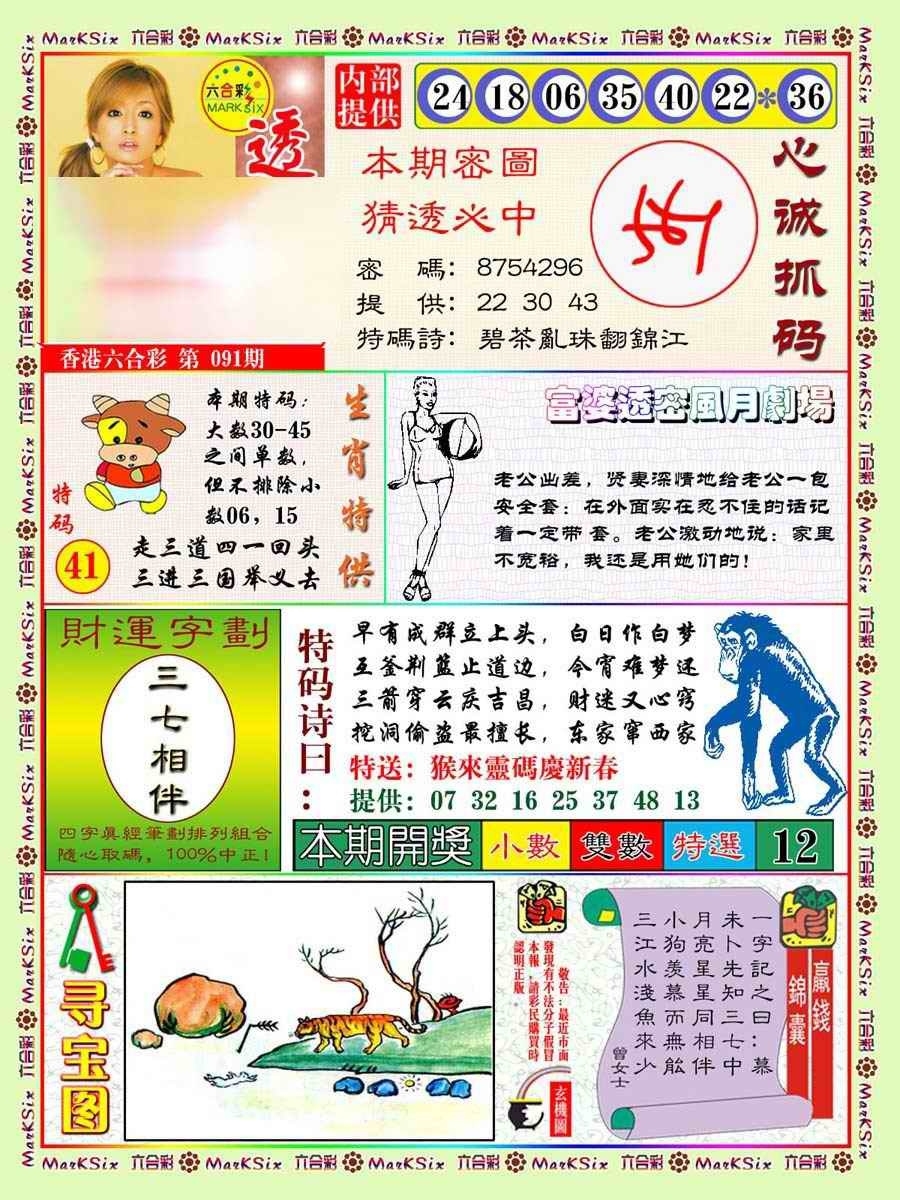 MarKSix 六合彩 MarKSix 六合彩 MarKSix 六合彩 MarKSix 六合彩 MarKSix 六合彩
六合彩
MARK SIX
透
内部
提供
24 18 06 35 40 22 * 36
本期密圖
猜透必中
密 碼: 8754296
提 供: 22 30 43
特碼詩: 碧茶亂珠翻錦江
心诚抓码
香港六合彩 第 091期
本期特码:
大数30-45
之间单数,
但不排除小
数06, 15
生肖特供
特码
41
走三道四一回头
三进三国举义去
富婆透密風月劇場
老公出差, 贤妻深情地给老公一包
安全套: 在外面实在忍不住的话记
着一定带 套。老公激动地说: 家里
不宽裕, 我还是用她们的!
財運字劃
三七相伴
四字真經筆劃排列組合
隨心取碼, 100%中正!
特码诗曰:
早有成群立上头, 白日作白梦
五釜荆蓝止道边, 今宵难梦还
三箭穿云庆吉昌, 财迷又心窍
挖洞偷盗最擅长, 东家窜西家
特送: 猴來靈碼慶新春
提供: 07 32 16 25 37 48 13
本期開獎 小數 雙數 特選 12
寻宝图
敬告:最近市面
發現有不法分子假冒
本報,請彩民購買時
認明正版。
玄機圖
一字記之曰:慕
未卜先知三七中
月亮星星同相伴
小狗羨慕而無能
三江水淺魚來少
曾女士
贏錢
錦囊
MarKSix 六合彩 MarKSix 六合彩 MarKSix 六合彩 MarKSix 六合彩 MarKSix 六合彩